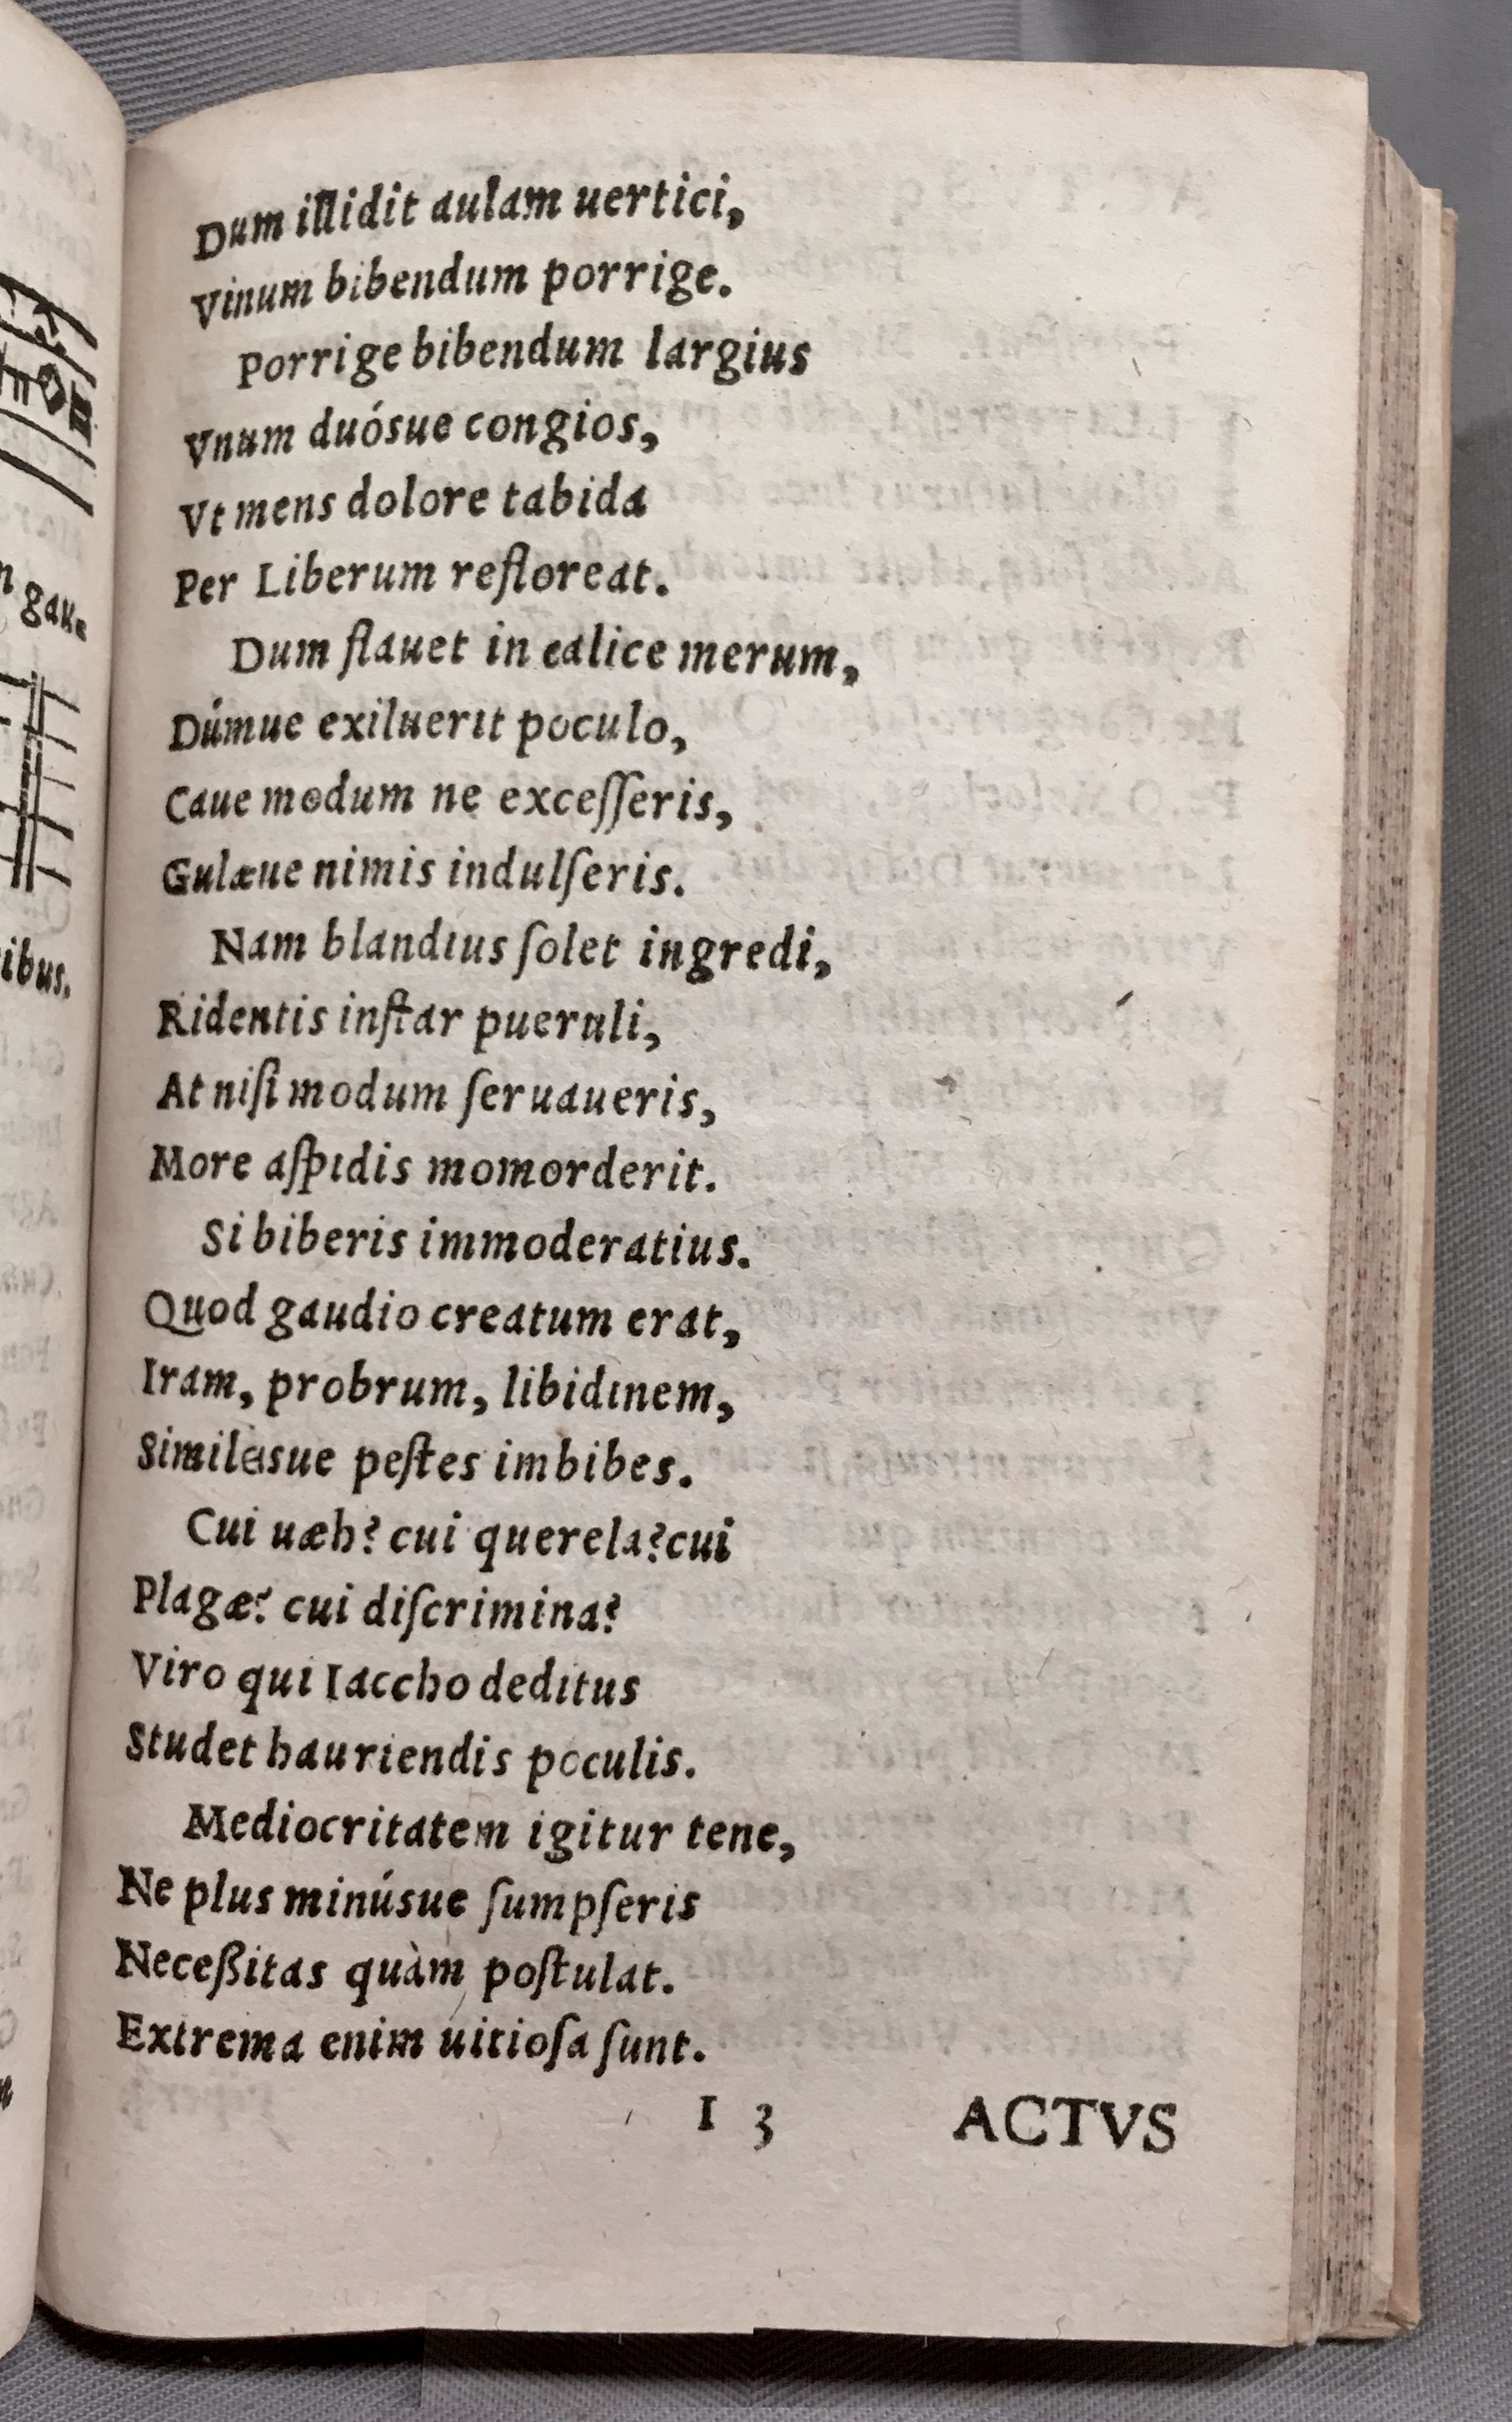 Dum illidit aulam uertici,
Vinum bibendum porrige.
Porrige bibendum largius
Vnum duósue congios,
Vt mens dolore tabida
Per Liberum refloreat.
Dum flauet in calice merum,
Dúmue exiluerit poculo,
Caue modum ne exceſſeris,
Gulæue nimis indulſeris.
Nam blandius ſolet ingredi,
Ridentis inſtar pueruli,
At niſi modum ſeruaueris,
More aſpidis momorderit.
Si biberis immoderatius.
Quod gaudio creatum erat,
Iram, probrum, libidinem,
Similesue peſtes imbibes.
Cui uæh? cui querela? cui
Plagæ? cui diſcrimina?
Viro qui Iaccho deditus
Studet hauriendis poculis.
Mediocritatem igitur tene,
Ne plus minúsue ſumpſeris
Neceßitas quàm poſtulat.
Extrema enim uitioſa ſunt.
I 3 ACTVS
gau-
ibus.